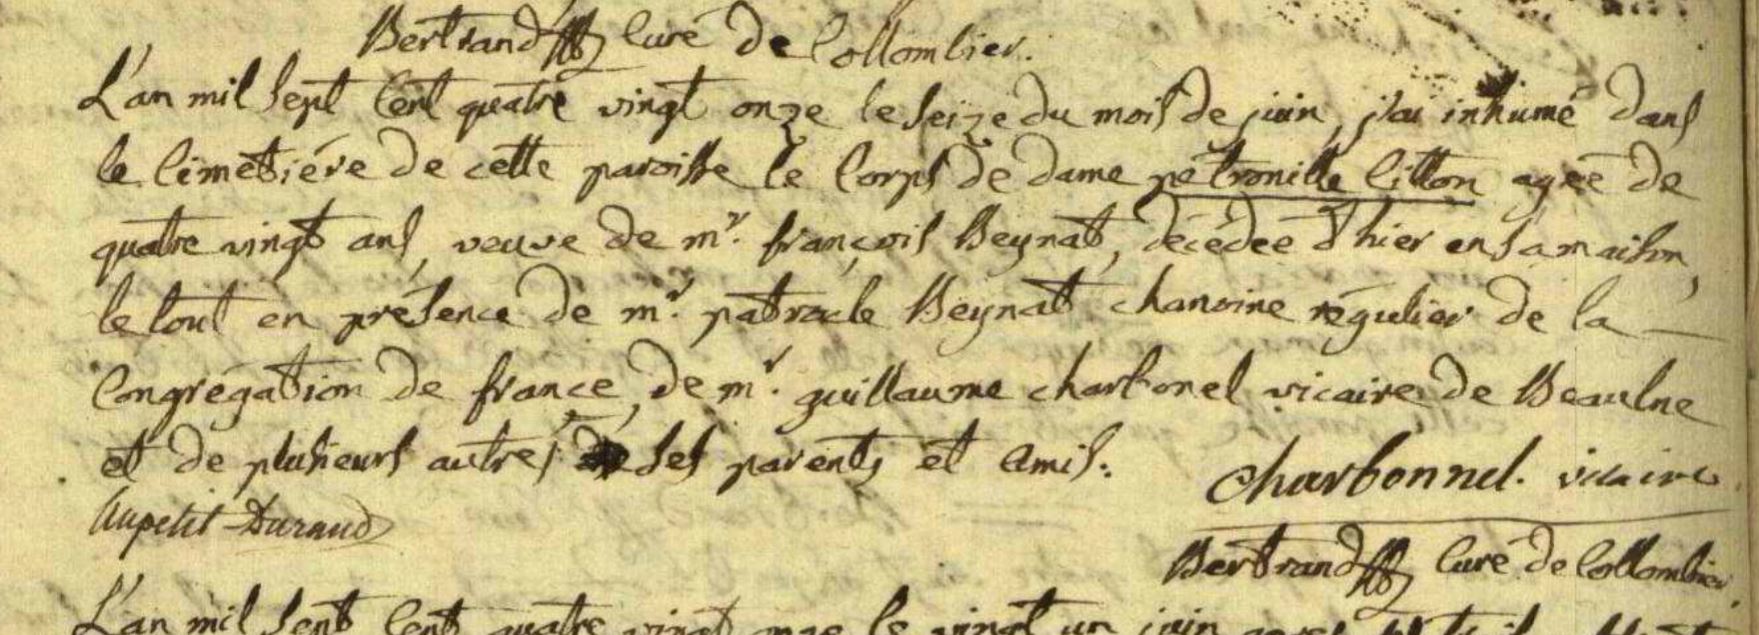 Bertrand Curé de Collombier.
L'an mil sept cent quatre vingt onze le seize du mois de juin, j'ai inhumé dans
le cimetiére de cette paroisse le corps de dame pétronille Litton agée de
quatre vingt ans, veuve de mr. françois Beynat, décédée d'hier en sa maison,
le tout en présence de mr. patrocle Beynat chanoine régulier de la
Congrégation de france, de mr. guillaume charbonel vicaire de Beaulne
et de plusieurs autres de ses parents et amis.
Charbonnel. vicaire
Aupetit-Durand
Bertrand Curé de Collombier
L'an mil sept cent quatre vingt onze le vingt un juin